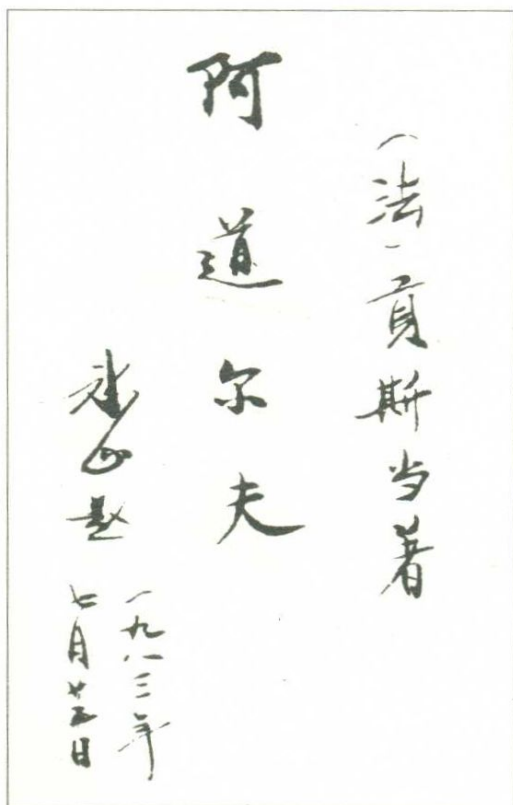 (法)貢斯当著
阿道尔夫
题
一九八三年
七月廿五日